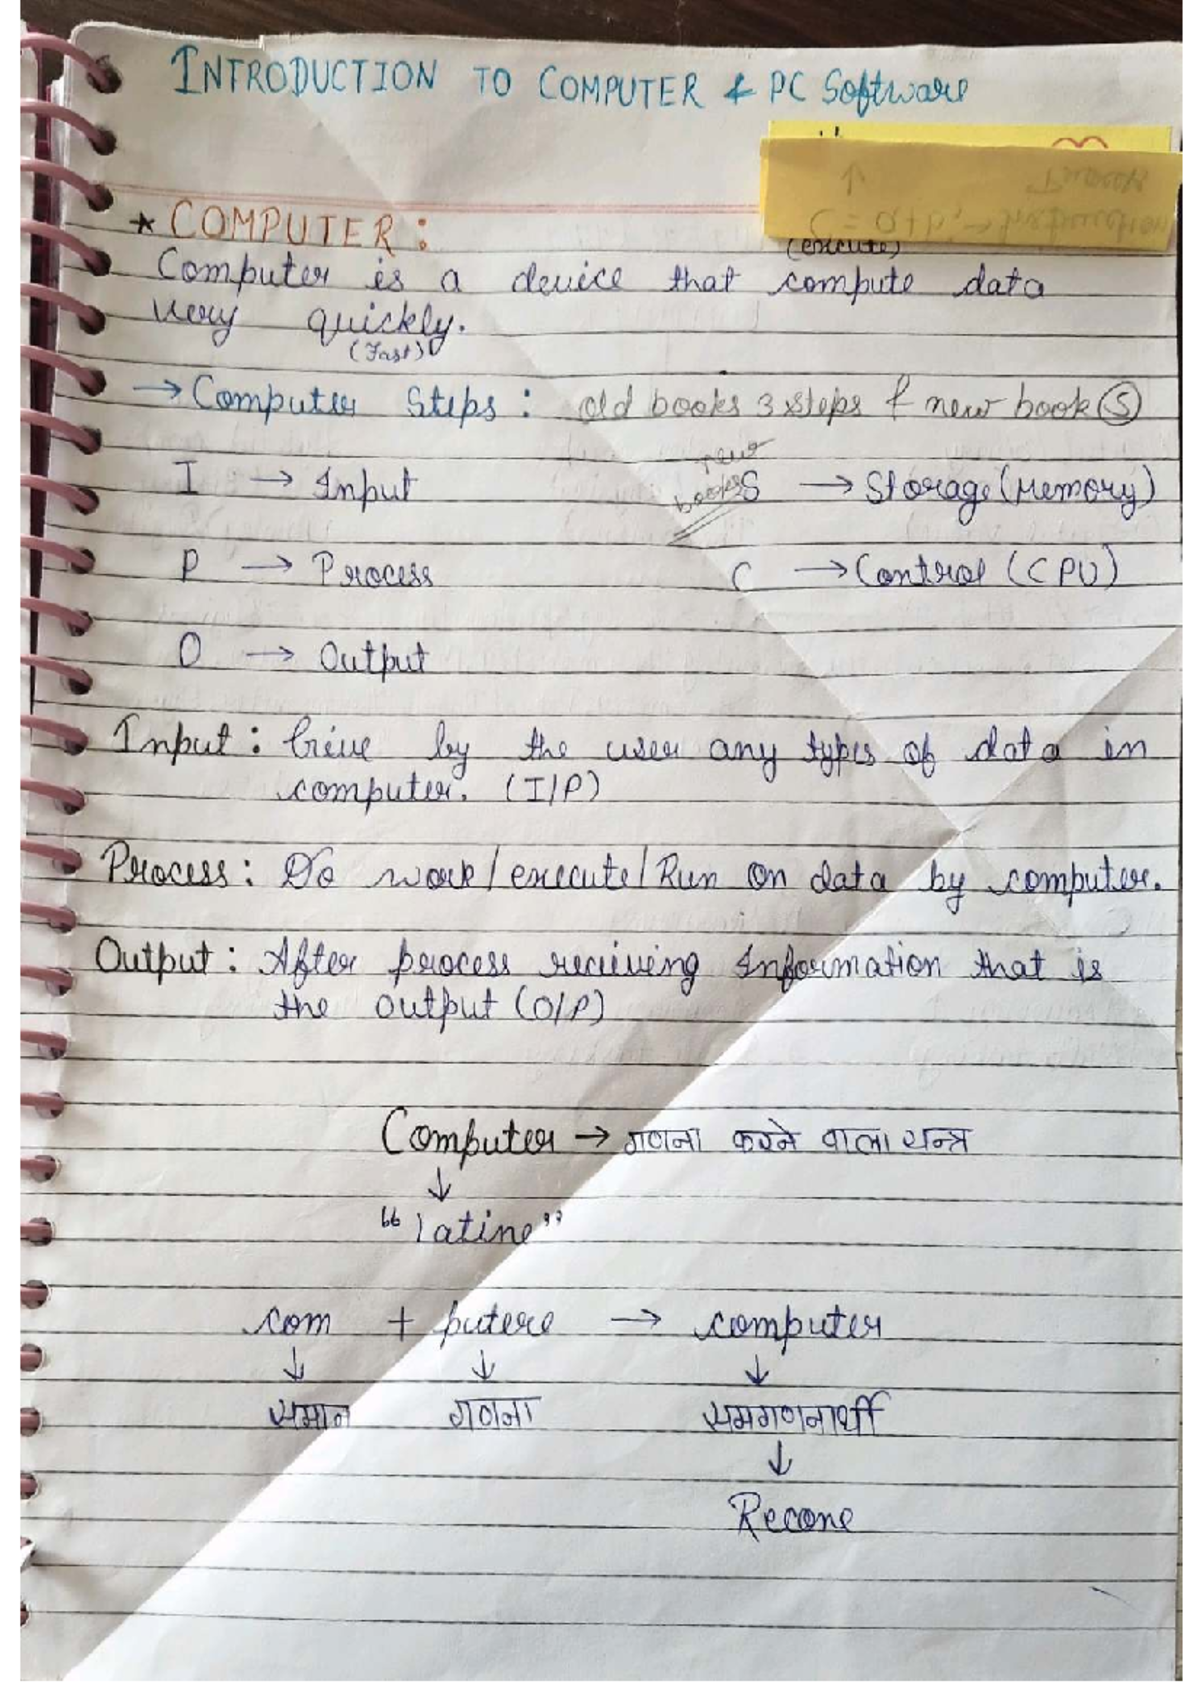 INTRODUCTION TO COMPUTER & PC Software
* COMPUTER :
(execute)
Computer is a device that compute data
very quickly.
(Fast)
→ Computer Steps : old books 3 steps & new book (5)
new
books
I → Input S → Storage (Memory)
P → Process C → Control (CPU)
O → Output
Input : Give by the user any types of data in
computer. (I/P)
Process : Do work/execute/Run on data by computer.
Output : After process recieving Information that is
the output (O/P)
Computer → गणना करने वाला यन्त्र
↓
"latine"
com + putere → computer
↓ ↓ ↓
समान गणना समगणनार्थी
↓
Recone